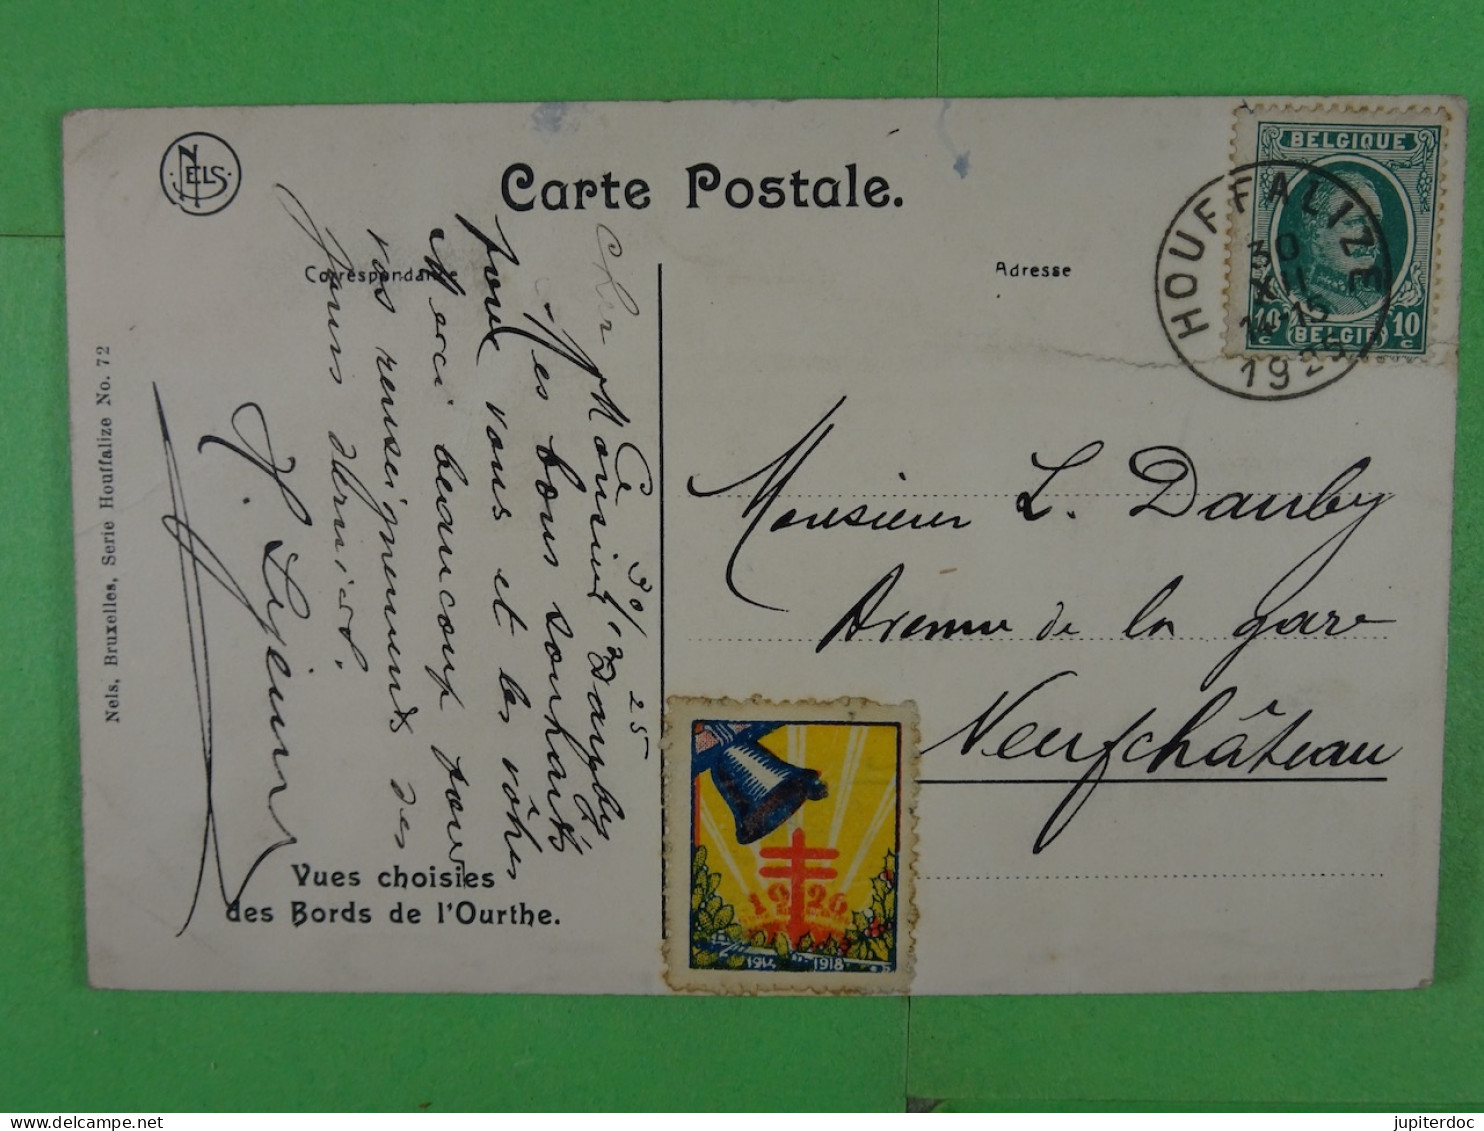 NELS
Carte Postale.
Correspondance
Adresse
BELGIQUE
10 c
10 c
BELGIË
HOUFFALIZE
30
XII
14-15
1925
Ce 30/12 25
Cher Monsieur Dauby,
Mes bons souhaits
pour vous et les vôtres
Merci beaucoup pour
vos renseignements des
jours derniers.
Monsieur L. Dauby
Avenue de la gare
Neufchâteau
1926
1914 1918
Vues choisies
des Bords de l'Ourthe.
Nels, Bruxelles, Serie Houffalize No. 72
jupiterdoc